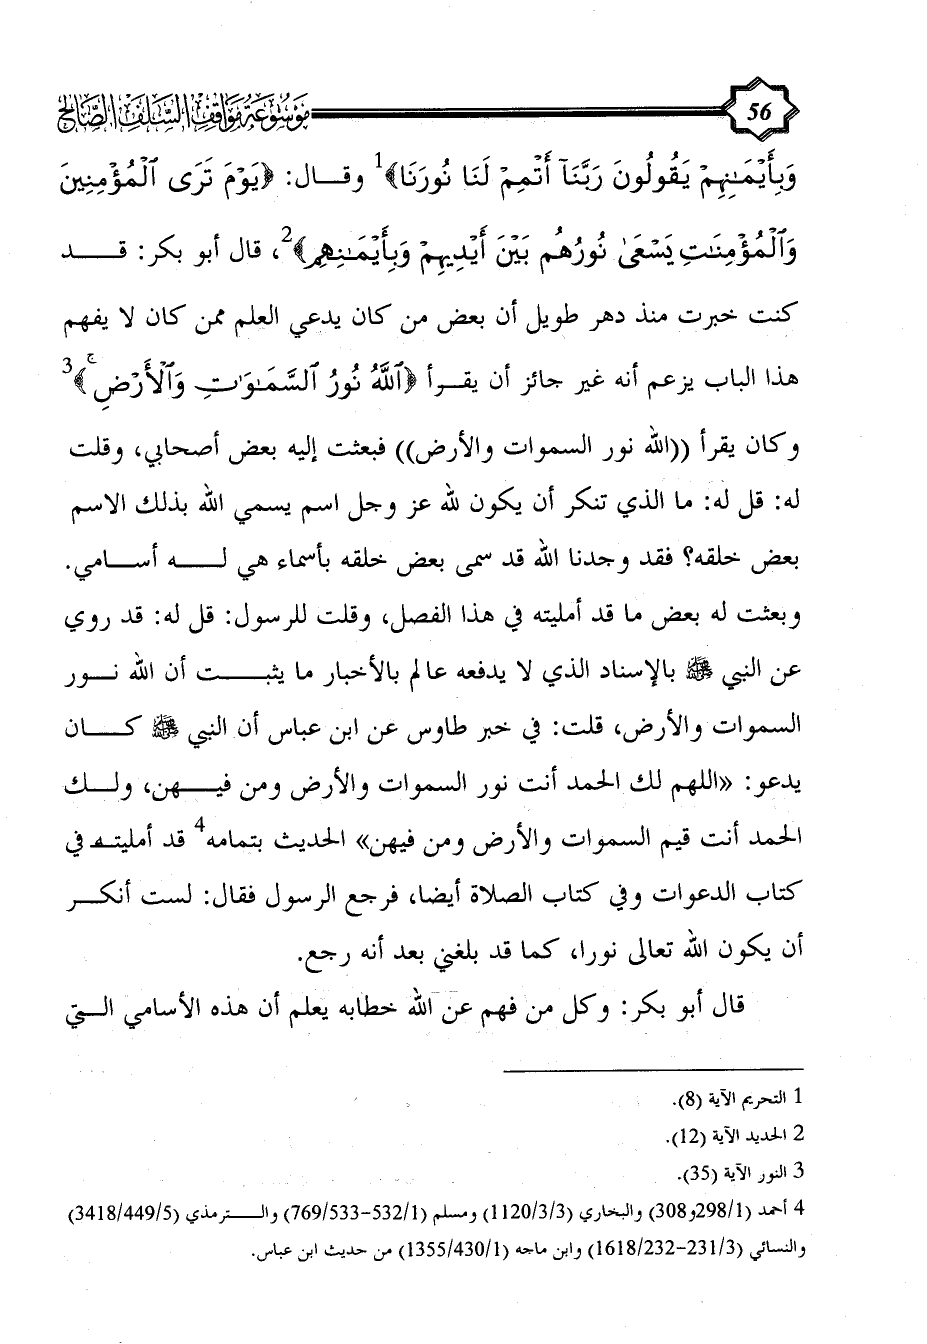 56
موسوعة مواقف السلف الصالح
وَبِأَيْمَـٰنِهِمْ يَقُولُونَ رَبَّنَآ أَتْمِمْ لَنَا نُورَنَا﴾1 وقـال: ﴿يَوْمَ تَرَى ٱلْمُؤْمِنِينَ
وَٱلْمُؤْمِنَـٰتِ يَسْعَىٰ نُورُهُم بَيْنَ أَيْدِيهِمْ وَبِأَيْمَـٰنِهِم﴾2، قال أبو بكر: قــد
كنت خبرت منذ دهر طويل أن بعض من كان يدعي العلم ممن كان لا يفهم
هذا الباب يزعم أنه غير جائز أن يقـرأ ﴿ٱللَّهُ نُورُ ٱلسَّمَـٰوَٰتِ وَٱلْأَرْضِ ۚ﴾3
وكان يقرأ ((الله نور السموات والأرض)) فبعثت إليه بعض أصحابي، وقلت
له: قل له: ما الذي تنكر أن يكون لله عز وجل اسم يسمي الله بذلك الاسم
بعض خلقه؟ فقد وجدنا الله قد سمى بعض خلقه بأسماء هي لـــه أسـامي.
وبعثت له بعض ما قد أمليته في هذا الفصل، وقلت للرسول: قل له: قد روي
عن النبي ﷺ بالإسناد الذي لا يدفعه عالم بالأخبار ما يثبـــت أن الله نــور
السموات والأرض، قلت: في خبر طاوس عن ابن عباس أن النبي ﷺ كـــان
يدعو: «اللهم لك الحمد أنت نور السموات والأرض ومن فيـــهن، ولــك
الحمد أنت قيم السموات والأرض ومن فيهن» الحديث بتمامه4 قد أمليتـه في
كتاب الدعوات وفي كتاب الصلاة أيضا، فرجع الرسول فقال: لست أنكـــر
أن يكون الله تعالى نورا، كما قد بلغني بعد أنه رجع.
قال أبو بكر: وكل من فهم عن الله خطابه يعلم أن هذه الأسامي الـتي
1 التحريم الآية (8).
2 الحديد الآية (12).
3 النور الآية (35).
4 أحمد (298/1و308) والبخاري (1120/3/3) ومسلم (532/1-769/533) والـــترمذي (3418/449/5)
والنسائي (231/3-1618/232) وابن ماجه (1355/430/1) من حديث ابن عباس.